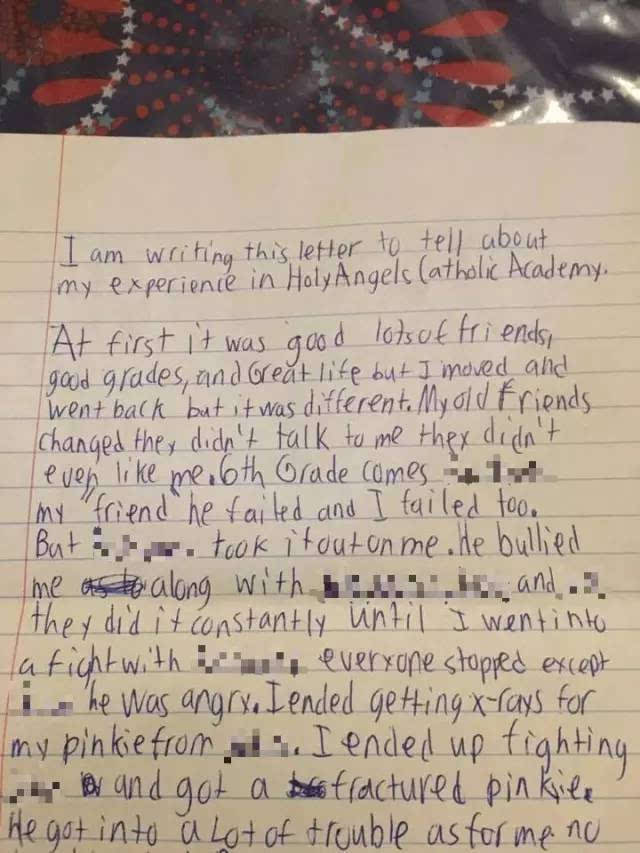 I am writing this letter to tell about
my experience in Holy Angels Catholic Academy.
At first it was good lots of friends,
good grades, and Great life but I moved and
went back but it was different. My old friends
changed they didn't talk to me they didn't
even like me. 6th Grade comes
my "friend" he failed and I failed too.
But took it out on me. He bullied
me along with and
they did it constantly Until I went into
a fight with everyone stopped except
he was angry. I ended getting x-rays for
my pinkie from . I ended up fighting
and got a fractured pinkie.
He got into a Lot of trouble as for me no